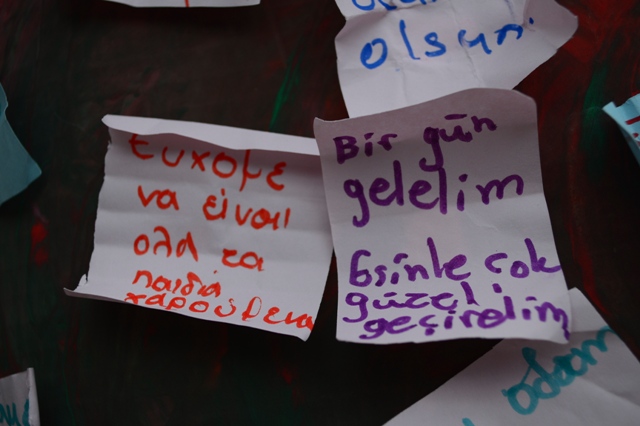 olsun.
Ευχομε
να είναι
ολα τα
παιδιά
χαρουμενα
Bir gün
gelelim
çok
güzel
geçirelim
odam